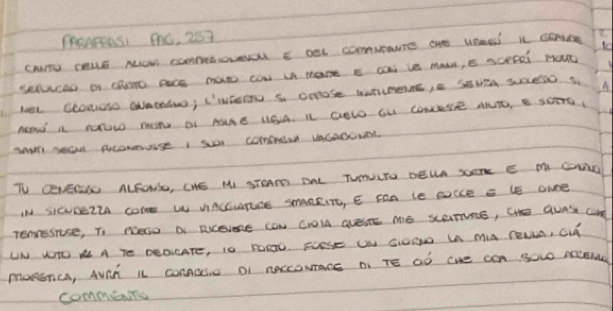 PARAFRASI PAG. 257
CANTO DELLE AZIONI E DEL COMANDANTE CHE LIBERÒ IL GRANDE
SEPOLCRO DI CRISTO. FECE MOLTO CON LA MENTE E CON LE MANI, E SOFFRÌ MOLTO
NEL GLORIOSO; L'INFERNO SI OPPOSE INUTILMENTE, E SENZA SUCCESSO SI
ARMÒ IL POPOLO MISTO DI ASIA E LIBIA. IL CIELO GLI CONCESSE AIUTO, E SOTTO I
SANTI SEGNI RICONDUSSE I SUOI COMPAGNI VAGABONDI.
TU GENEROSO ALFONSO, CHE MI STRAPPI DAL TUMULTO DELLA SORTE E MI
IN SICUREZZA COME UN VIAGGIATORE SMARRITO, E FRA LE ROCCE E LE ONDE
TEMPESTOSE, TI PREGO DI RICEVERE CON GIOIA QUESTE MIE SCRITTURE, CHE QUASI COME
UN VOTO A TE DEDICATE, IO PORTO. FORSE UN GIORNO LA MIA PENNA, GIÀ
PROFETICA, AVRÀ IL CORAGGIO DI RACCONTARE DI TE CIÒ CHE ORA SOLO
COMMENTO